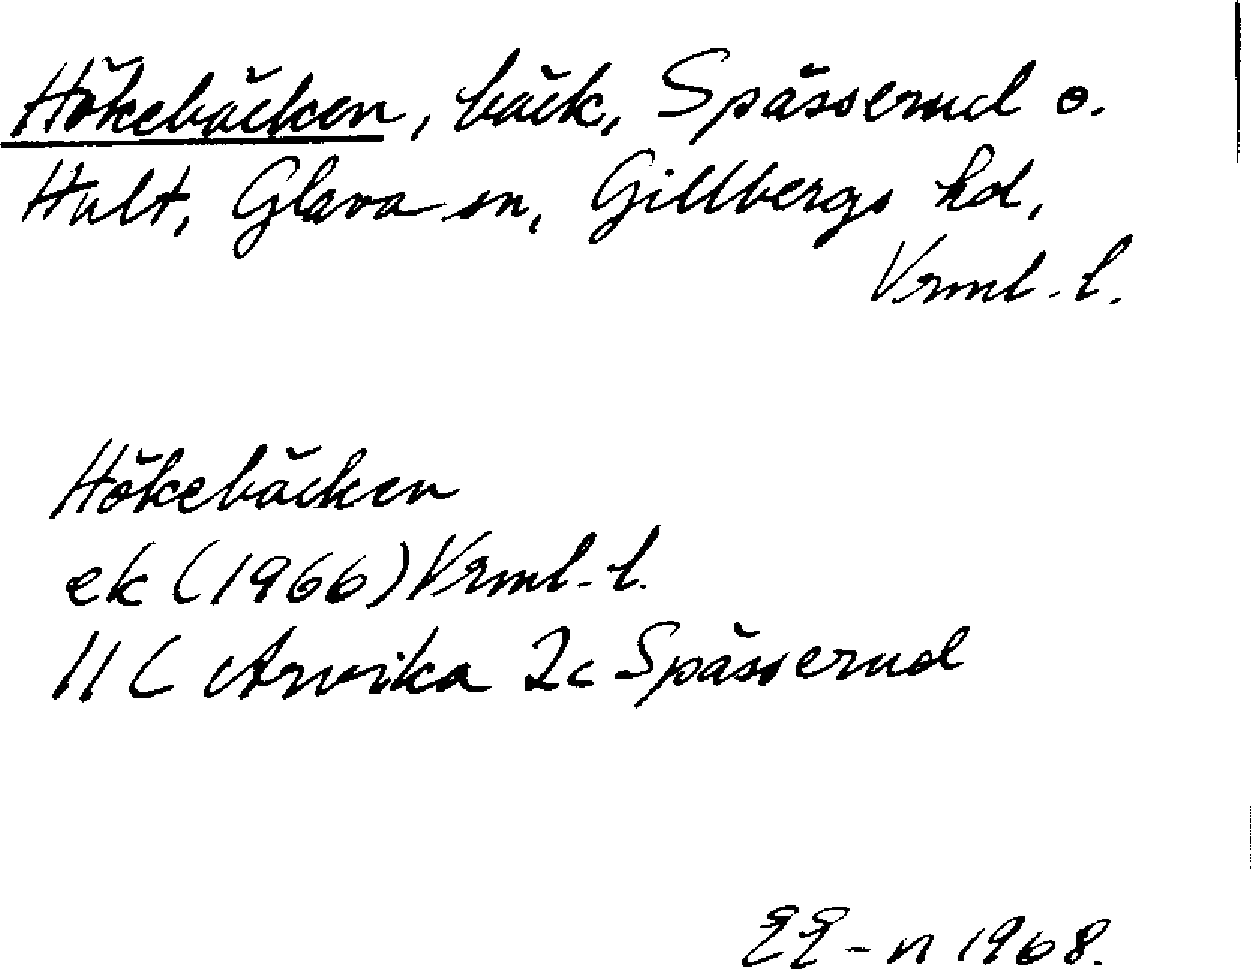 Hökebäcken, bäck, Spässerud o.
Hult, Glava sn, Gillbergs hd,
Vrml. l.
Hökebäcken
ek (1966) Vrml. l.
11 C Arvika 2c Spässerud
EE-n 1968.